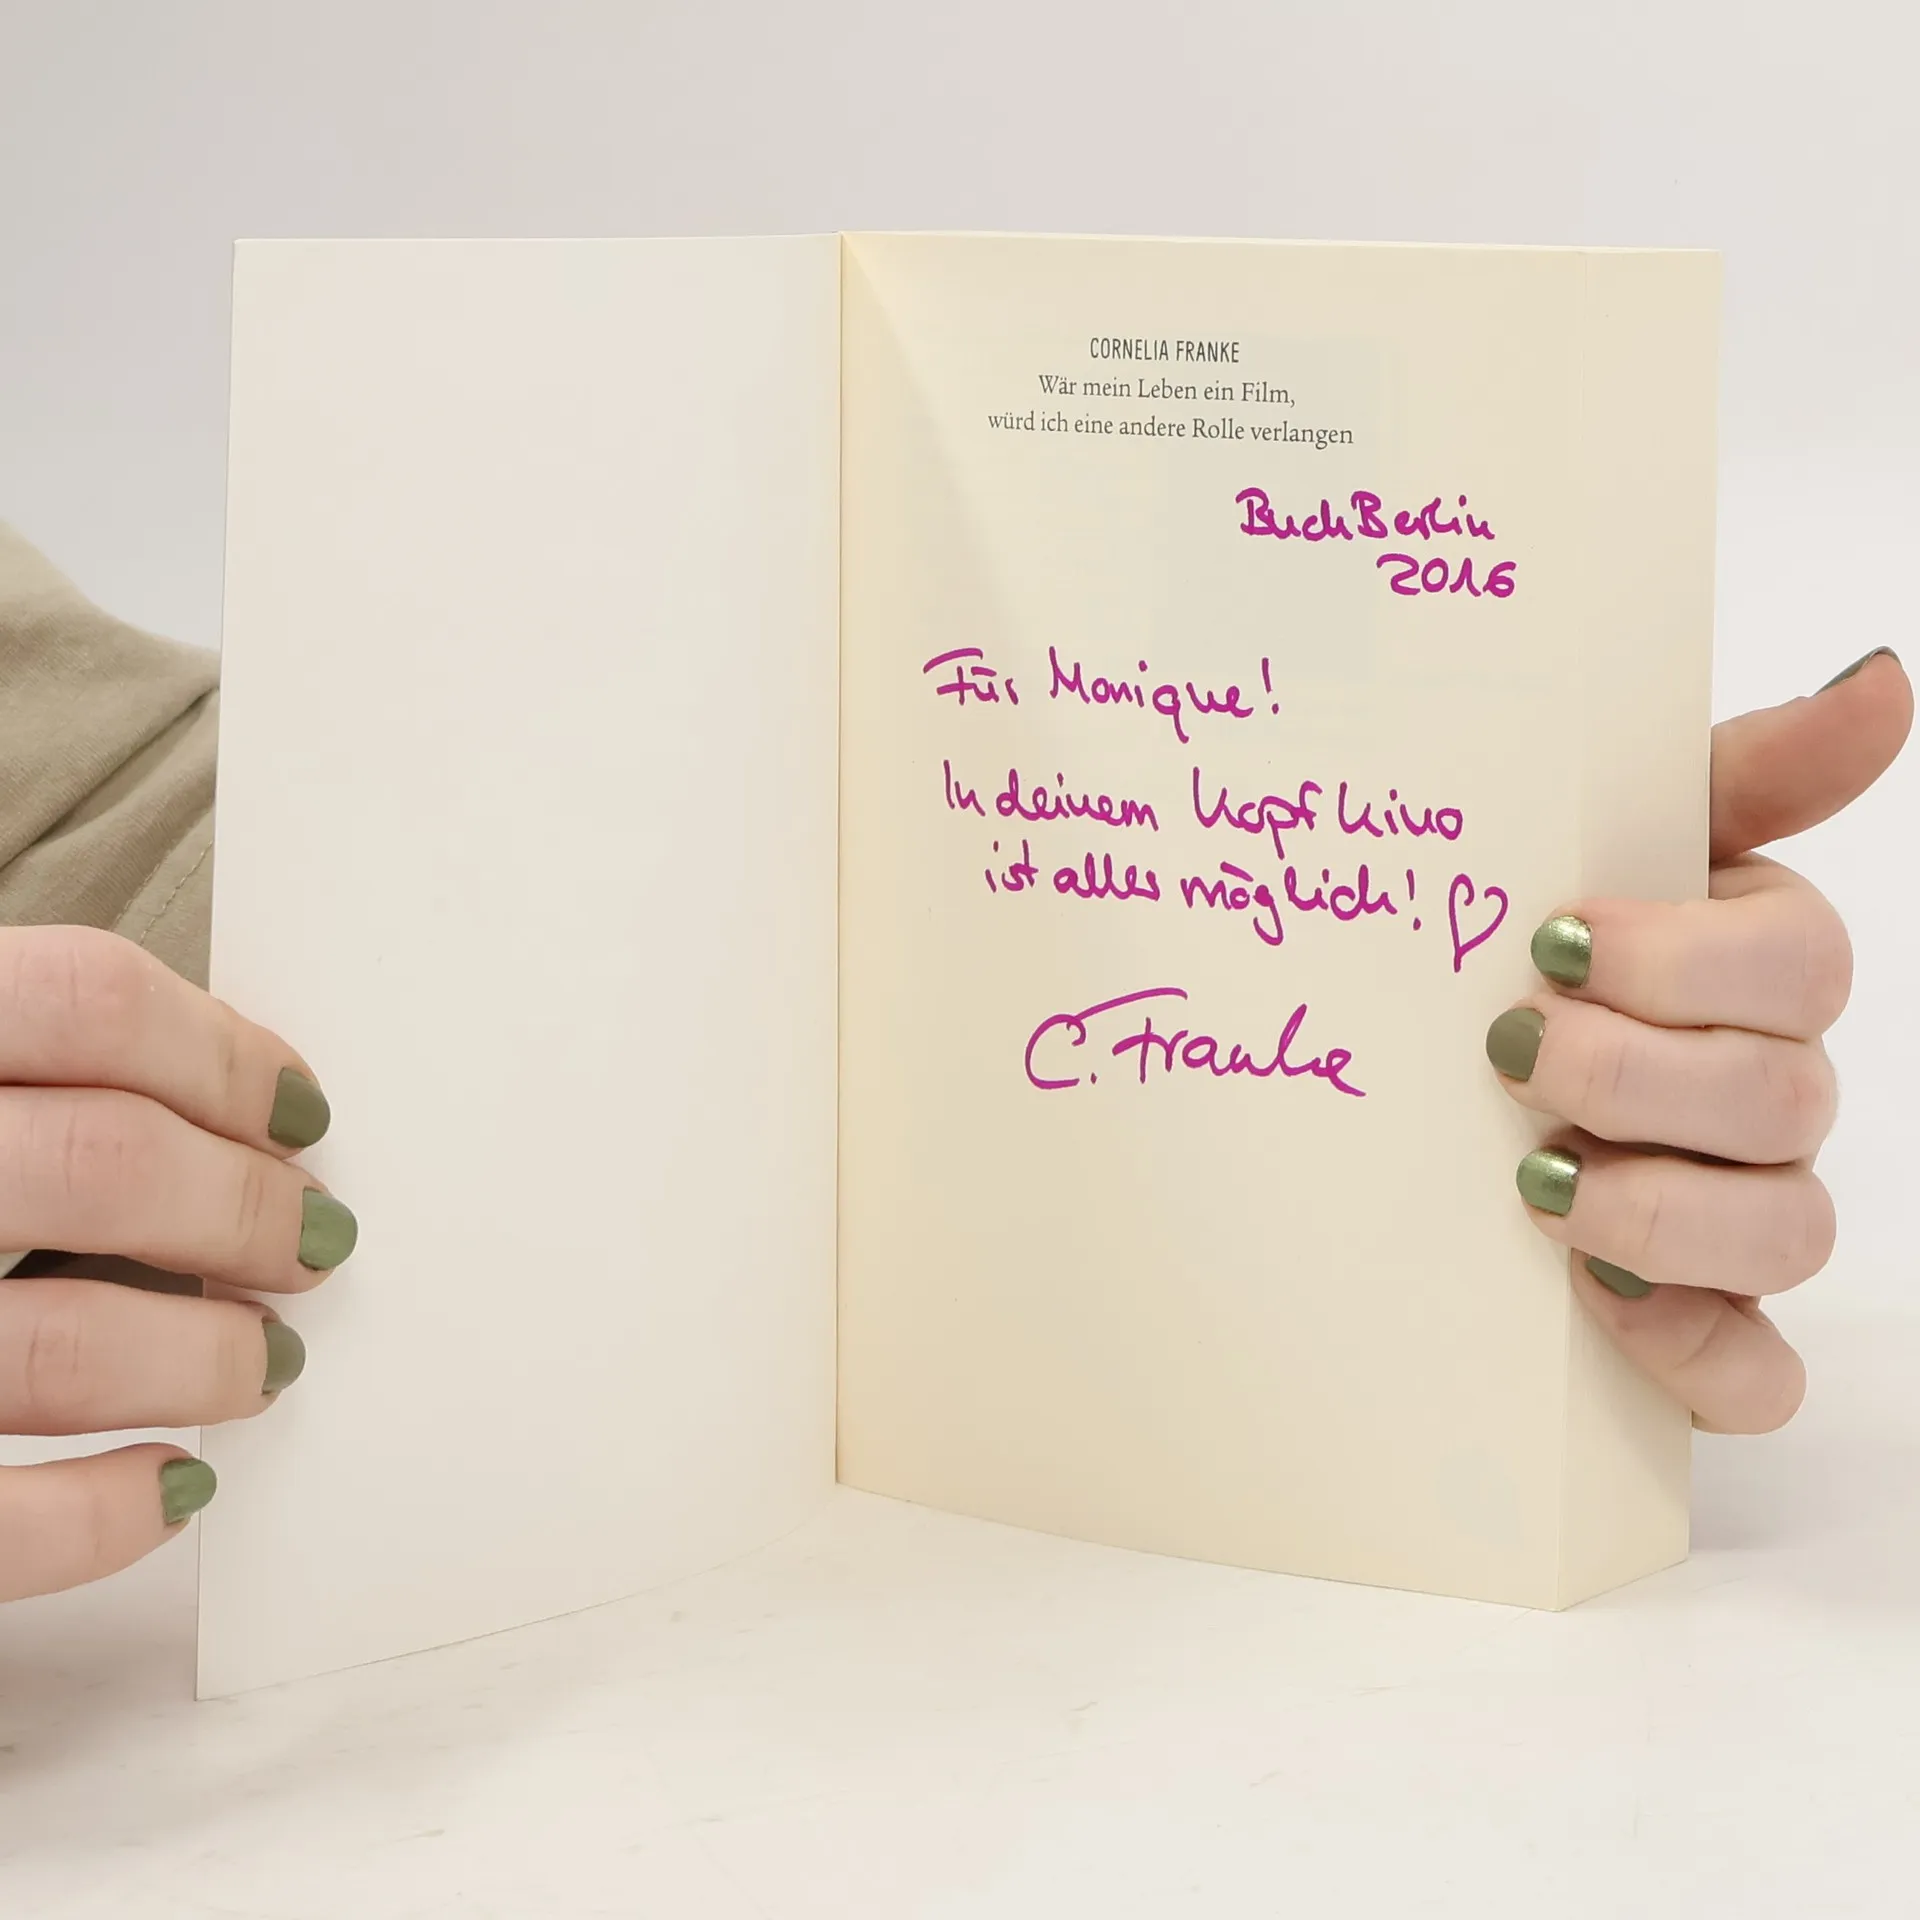 CORNELIA FRANKE
Wär mein Leben ein Film,
würd ich eine andere Rolle verlangen
BuchBerlin
2016
Für Monique!
In deinem Kopfkino
ist alles möglich! ♡
C. Franke